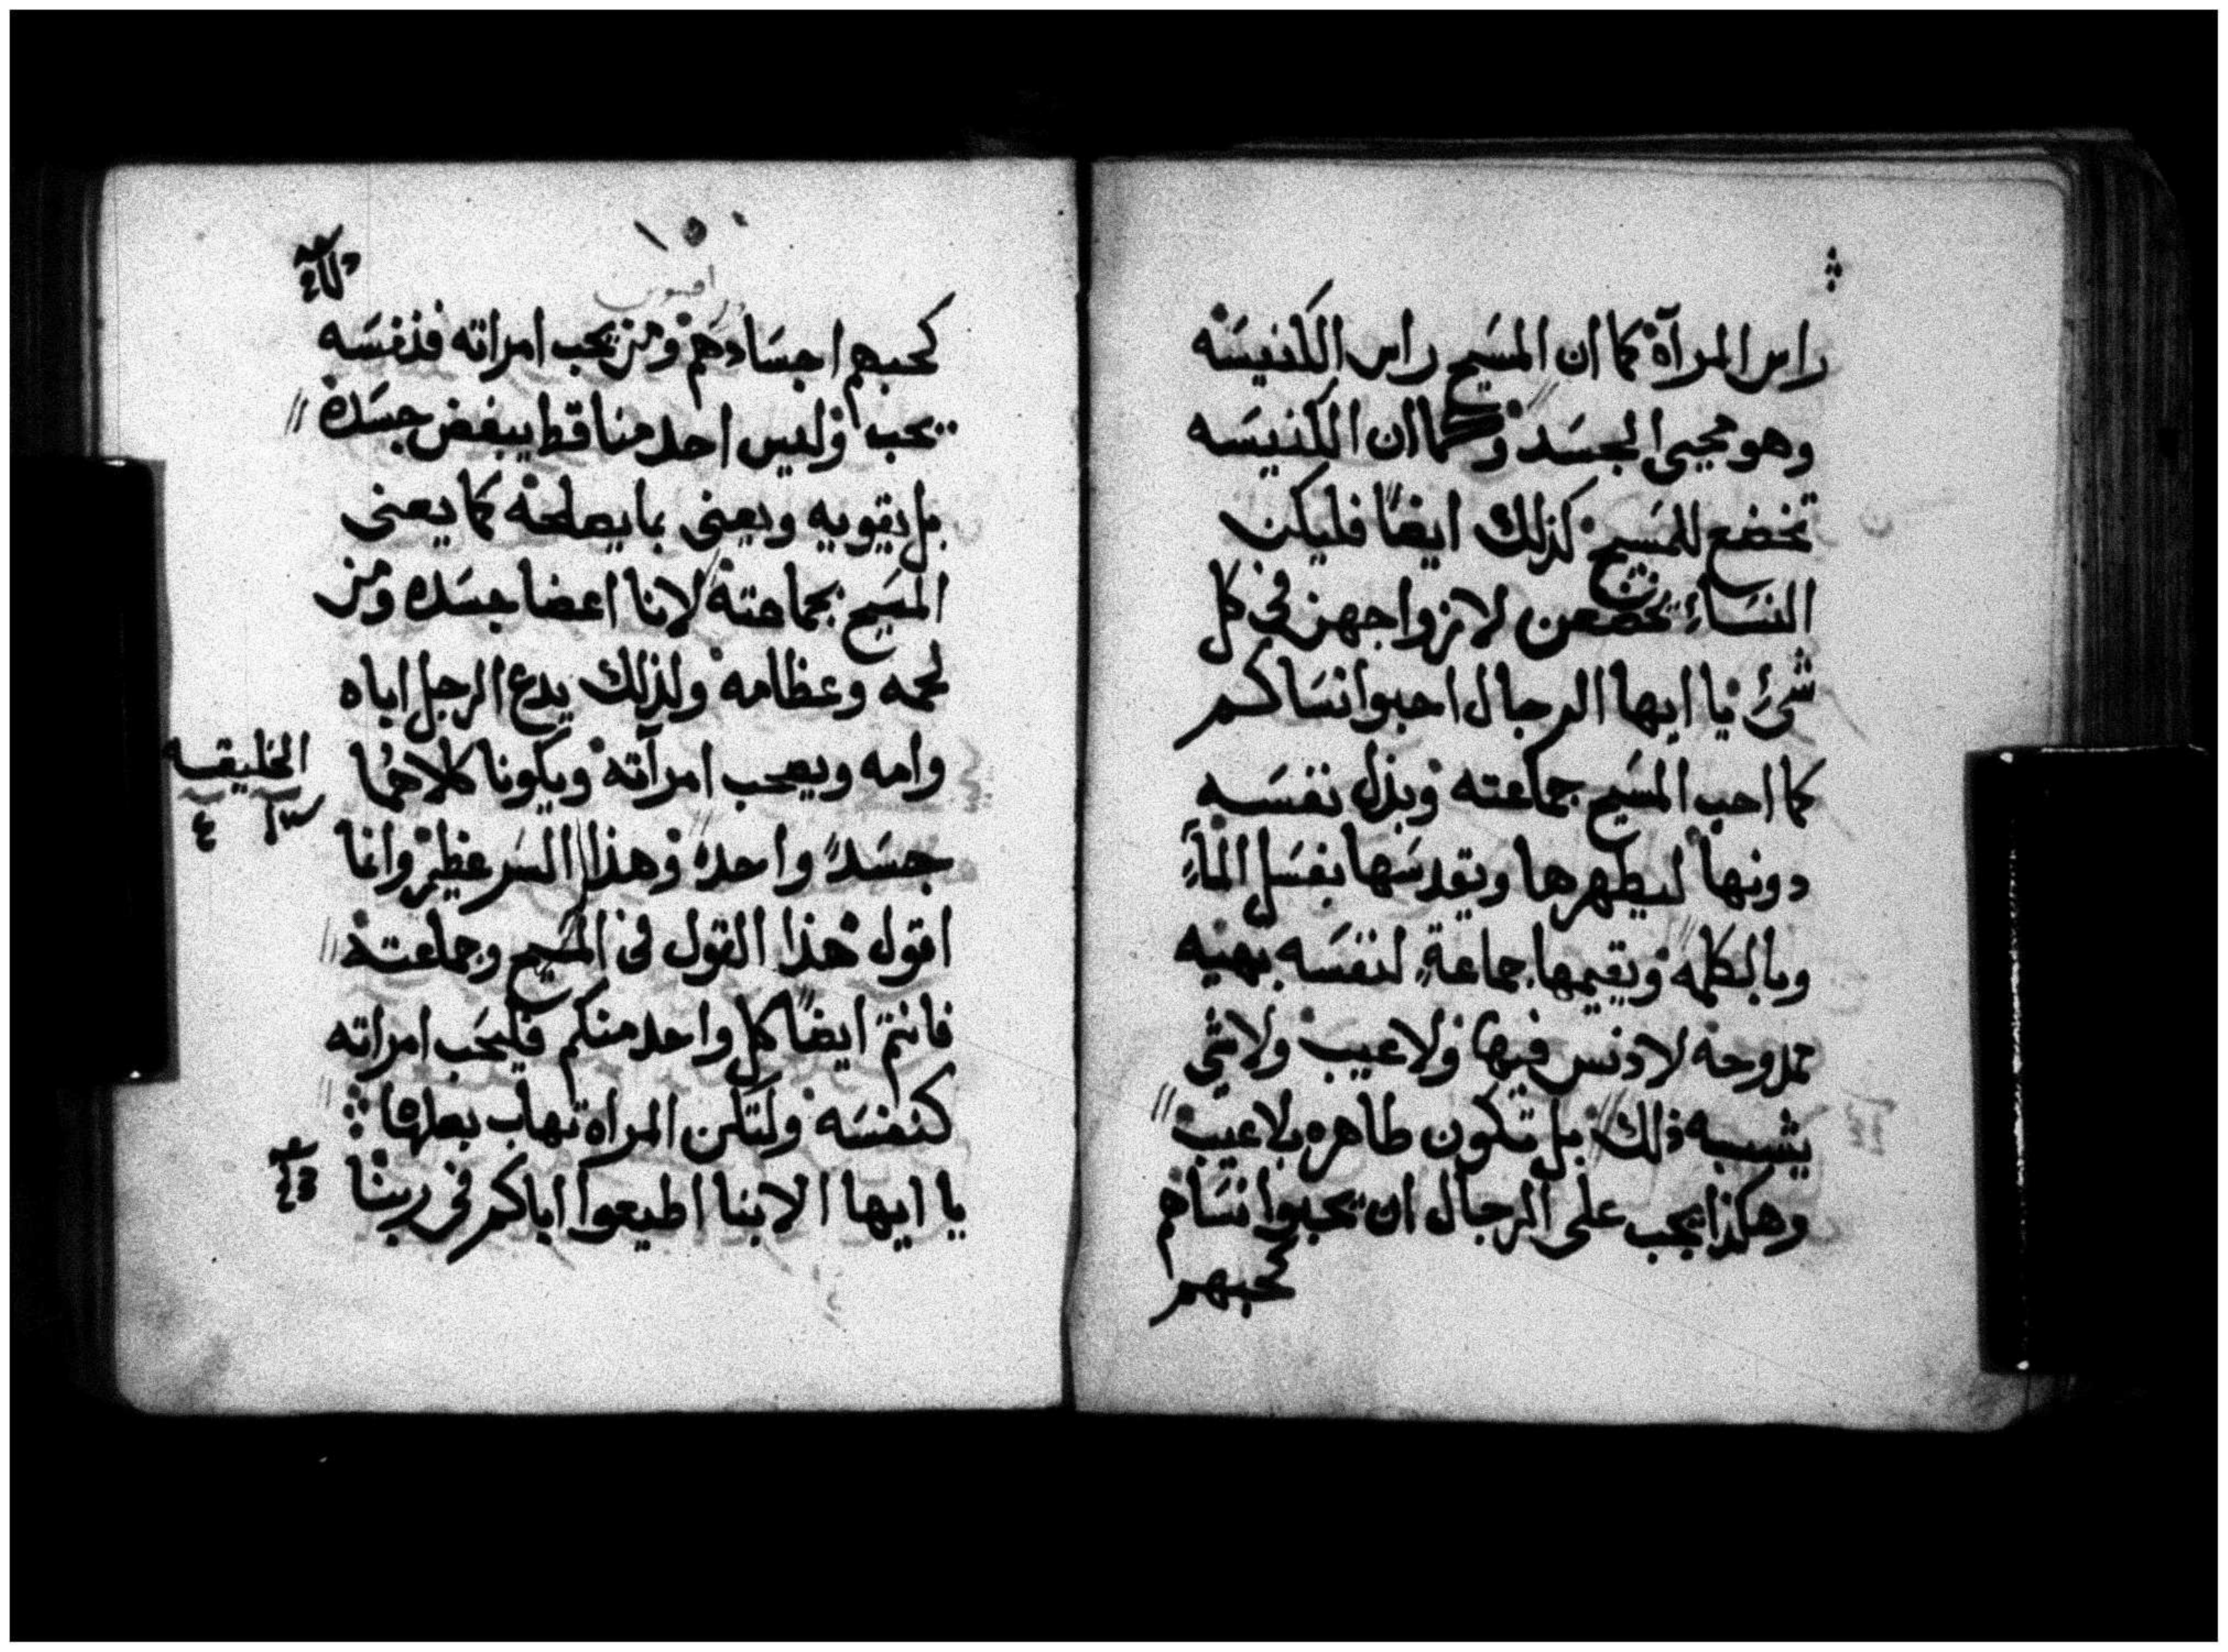 راس المرآة كما ان المسَيح راس الكنيسَه
وهو محيى الجسَد وكما ان الكنيسَه
تخضع للمسَيح كذلك ايضًا فليكن
النسَاء يخضعن لازواجهن في كل
شئ يا ايها الرجال احبوا نسَاكم
كما احب المسَيح جماعته وبذل نفسَه
دونها ليطهرها ويقدسَها بغسَل الماء
وبالكلمه ويقيمها جماعةٍ لنفسَه بهيه
ممدوحه لا دنس فيها ولا عيب ولا شي
يشبه ذلك بل تكون طاهره بلا عيب
وهكذا يجب على الرجال ان يحبوا نسَاهم
كحبهم
افسس
كحبهم اجسَادهم ومن يحب امراته فنفسَه
يحب وليس احد منا قط يبغض جسَده
بل يقويه ويعنى بما يصلحه كما يعنى
المسَيح بجماعته لاننا اعضا جسَده ومن
لحمه وعظامه ولذلك يدع الرجل اباه
وامه ويصحب امرآته ويكونا كلاهُما
الخليقه
٤
جسَدً واحدً وهذا السَر عظيم وانما
اقول هذا القول في المسَيح وجماعته
فانتم ايضًا كل واحد منكم فليحَب امراته
كنفسَه ولتكن المراه تهاب بعلها
يا ايها الابنا اطيعوا اباكم في ربنا